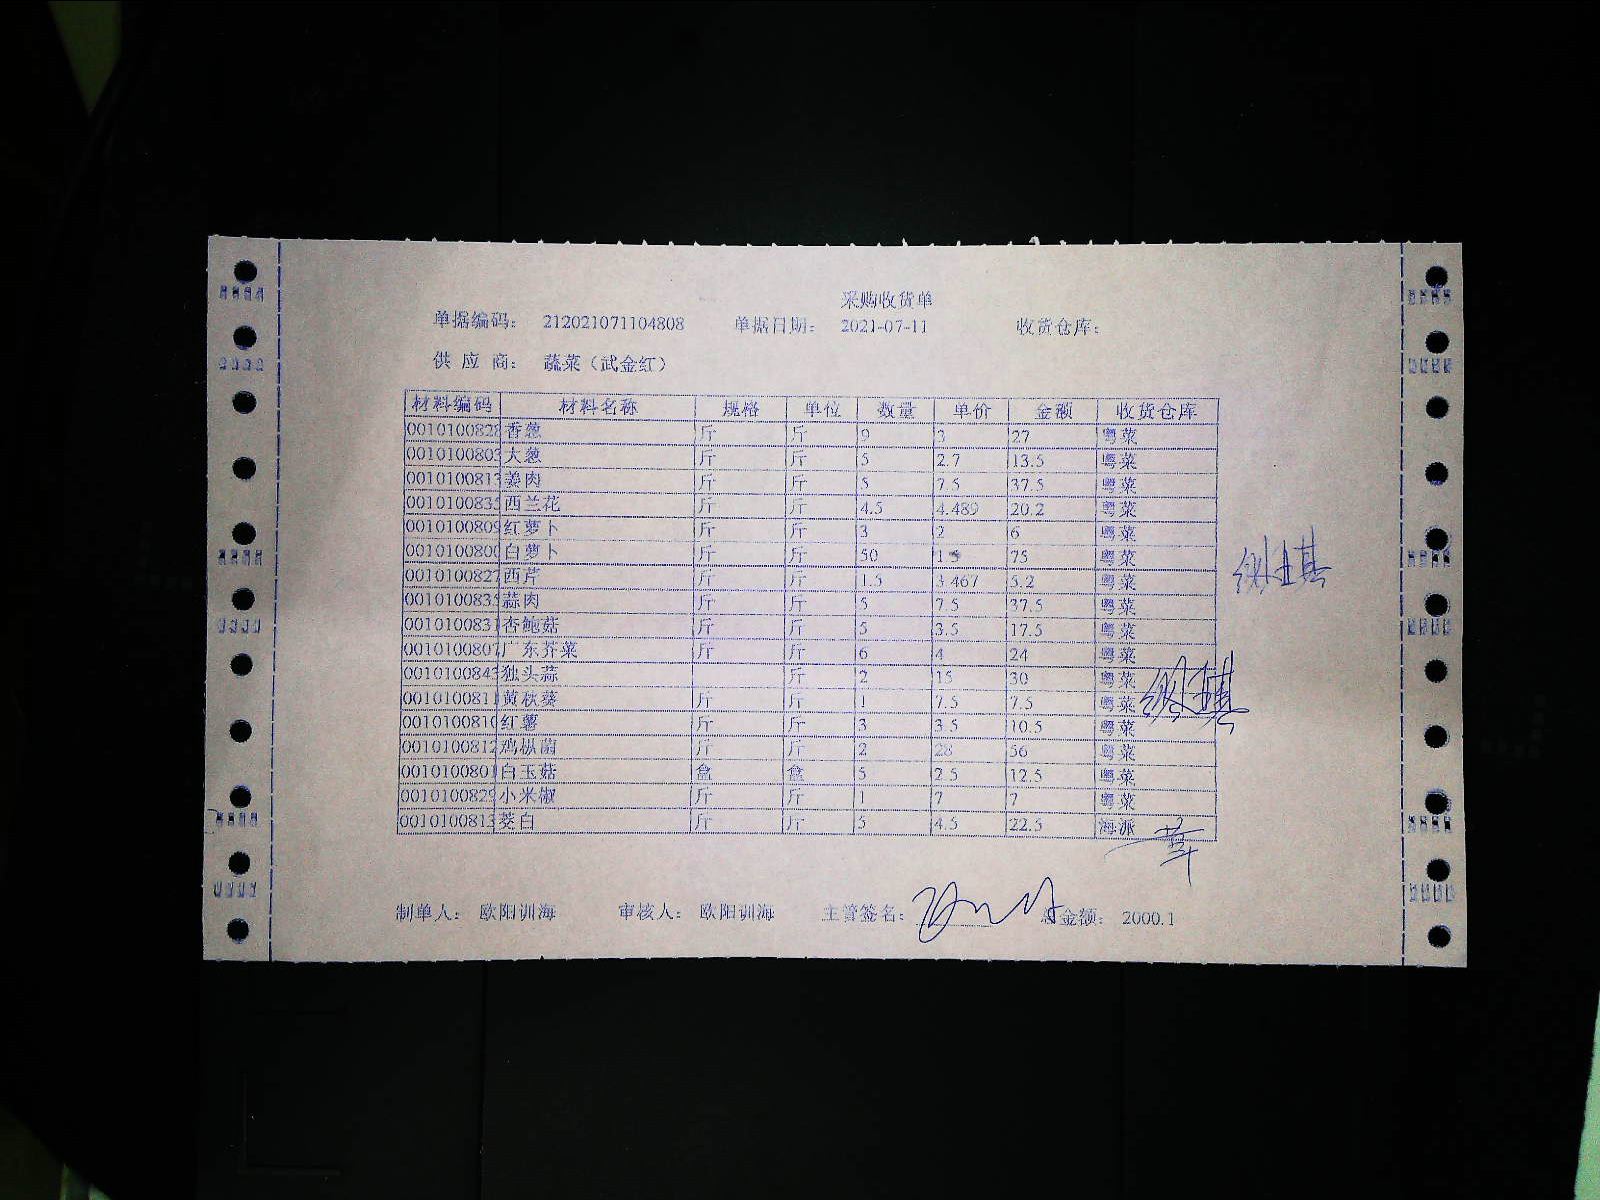 采购收货单
单据编码： 212021071104808 单据日期： 2021-07-11 收货仓库：
供 应 商： 蔬菜（武金红）
材料编码 材料名称 规格 单位 数量 单价 金额 收货仓库
0010100828 香葱 斤 斤 9 3 27 粤菜
0010100803 大葱 斤 斤 5 2.7 13.5 粤菜
0010100813 姜肉 斤 斤 5 7.5 37.5 粤菜
0010100835 西兰花 斤 斤 4.5 4.489 20.2 粤菜
0010100809 红萝卜 斤 斤 3 2 6 粤菜
0010100800 白萝卜 斤 斤 50 75 粤菜
0010100827 西芹 斤 斤 1.5 3.467 5.2 粤菜
0010100835 蒜肉 斤 斤 5 7.5 37.5 粤菜
0010100831 杏鲍菇 斤 斤 5 3.5 17.5 粤菜
0010100807 广东芥菜 斤 斤 6 4 24 粤菜
0010100843 独头蒜 斤 2 15 30 粤菜
0010100811 黄秋葵 斤 斤 1 7.5 7.5 粤菜
0010100810 红薯 斤 斤 3 3.5 10.5 粤菜
0010100812 鸡枞菌 斤 斤 2 28 56 粤菜
0010100801 白玉菇 盒 盒 5 2.5 12.5 粤菜
0010100829 小米椒 斤 斤 1 7 7 粤菜
0010100813 茭白 斤 斤 5 4.5 22.5 海派
制单人： 欧阳训海 审核人： 欧阳训海 主管签名： 总金额： 2000.1